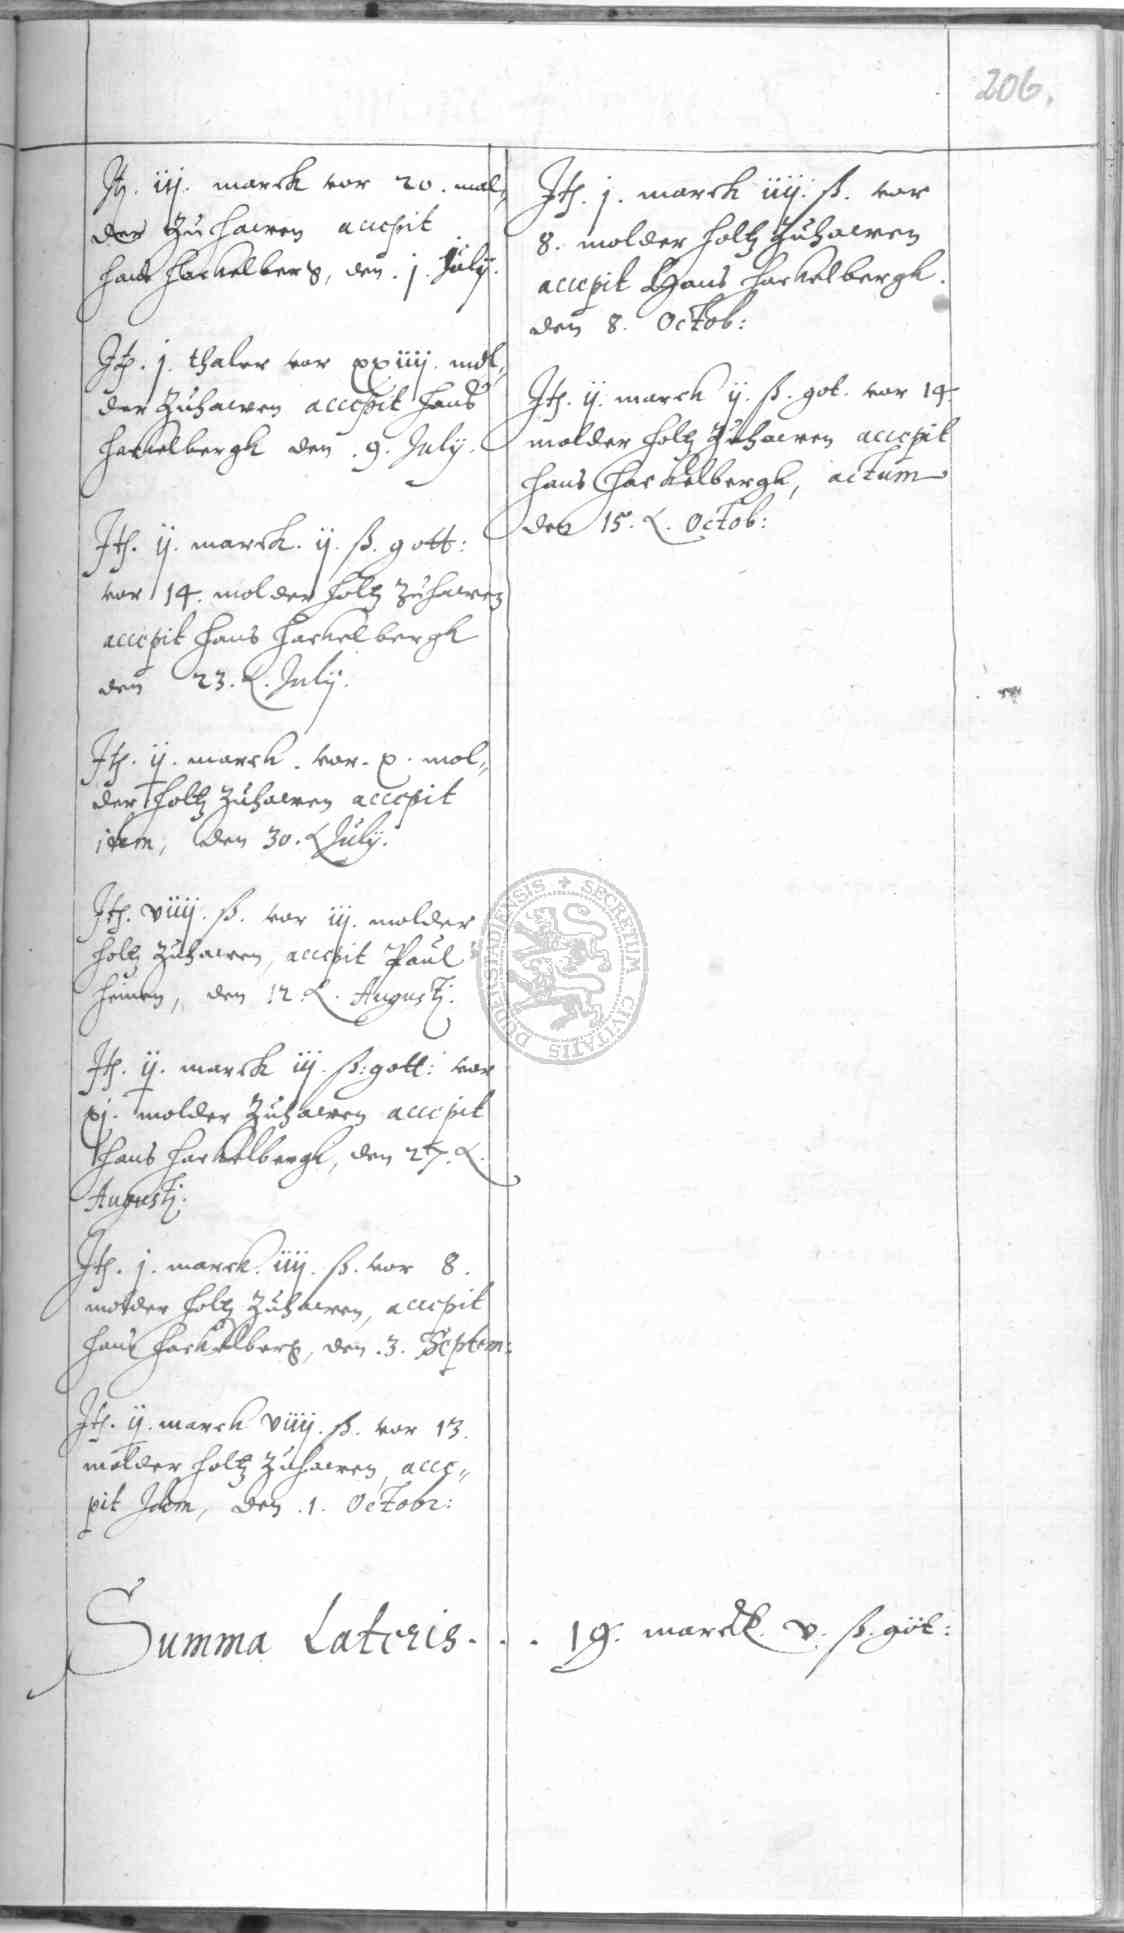 206.
Itz. iiij. marck vor 20. mol„
der zu hawen accepit
hans Hackelberg, den . j. July.
Itz. j. thaler vor xxiiij. mol„
der zuhawen accepit hans
hackelbergk den . 9. July.
Itz. ij. marck. ij. ß. gott:
vor 14. molder holtz zuhawen
accepit hans hackelbergk
den 23. July.
Itz. ij. marck . vor . x . mol„
der holtz zuhawen accepit
idem, den 30. July.
Itz. viiij. ß. vor iij. molder
holtz zuhawen, accepit Paul
heinen, den 12. Augustj.
Itz. ij. marck iij. ß. gott: vor
xj. molder zuhawen accepit
hans hackelbergk, den 27.
Augustj.
Itz. j. marck. iiij. ß. vor 8.
molder holtz zuhawen, accepit
hans hackelberg, den .3. Septem:
Itz. ij. marck viiij. ß. vor 13.
molder holtz zuhawen, acce„
pit Idem, den .1. Octobr:
Itz. j. marck iiij. ß. vor
8. molder holtz zuhawen
accepit Hans hackelbergk.
den 8. Octob:
Itz. ij. marck ij. ß. got. vor 14.
molder holtz zuhawen accepit
hans hackelbergk, actum
den 15. Octob:
Summa Lateris . . . 19. marck. v. ß. göt:
SECRETUM CIVITATIS DUDERSTADIENSIS